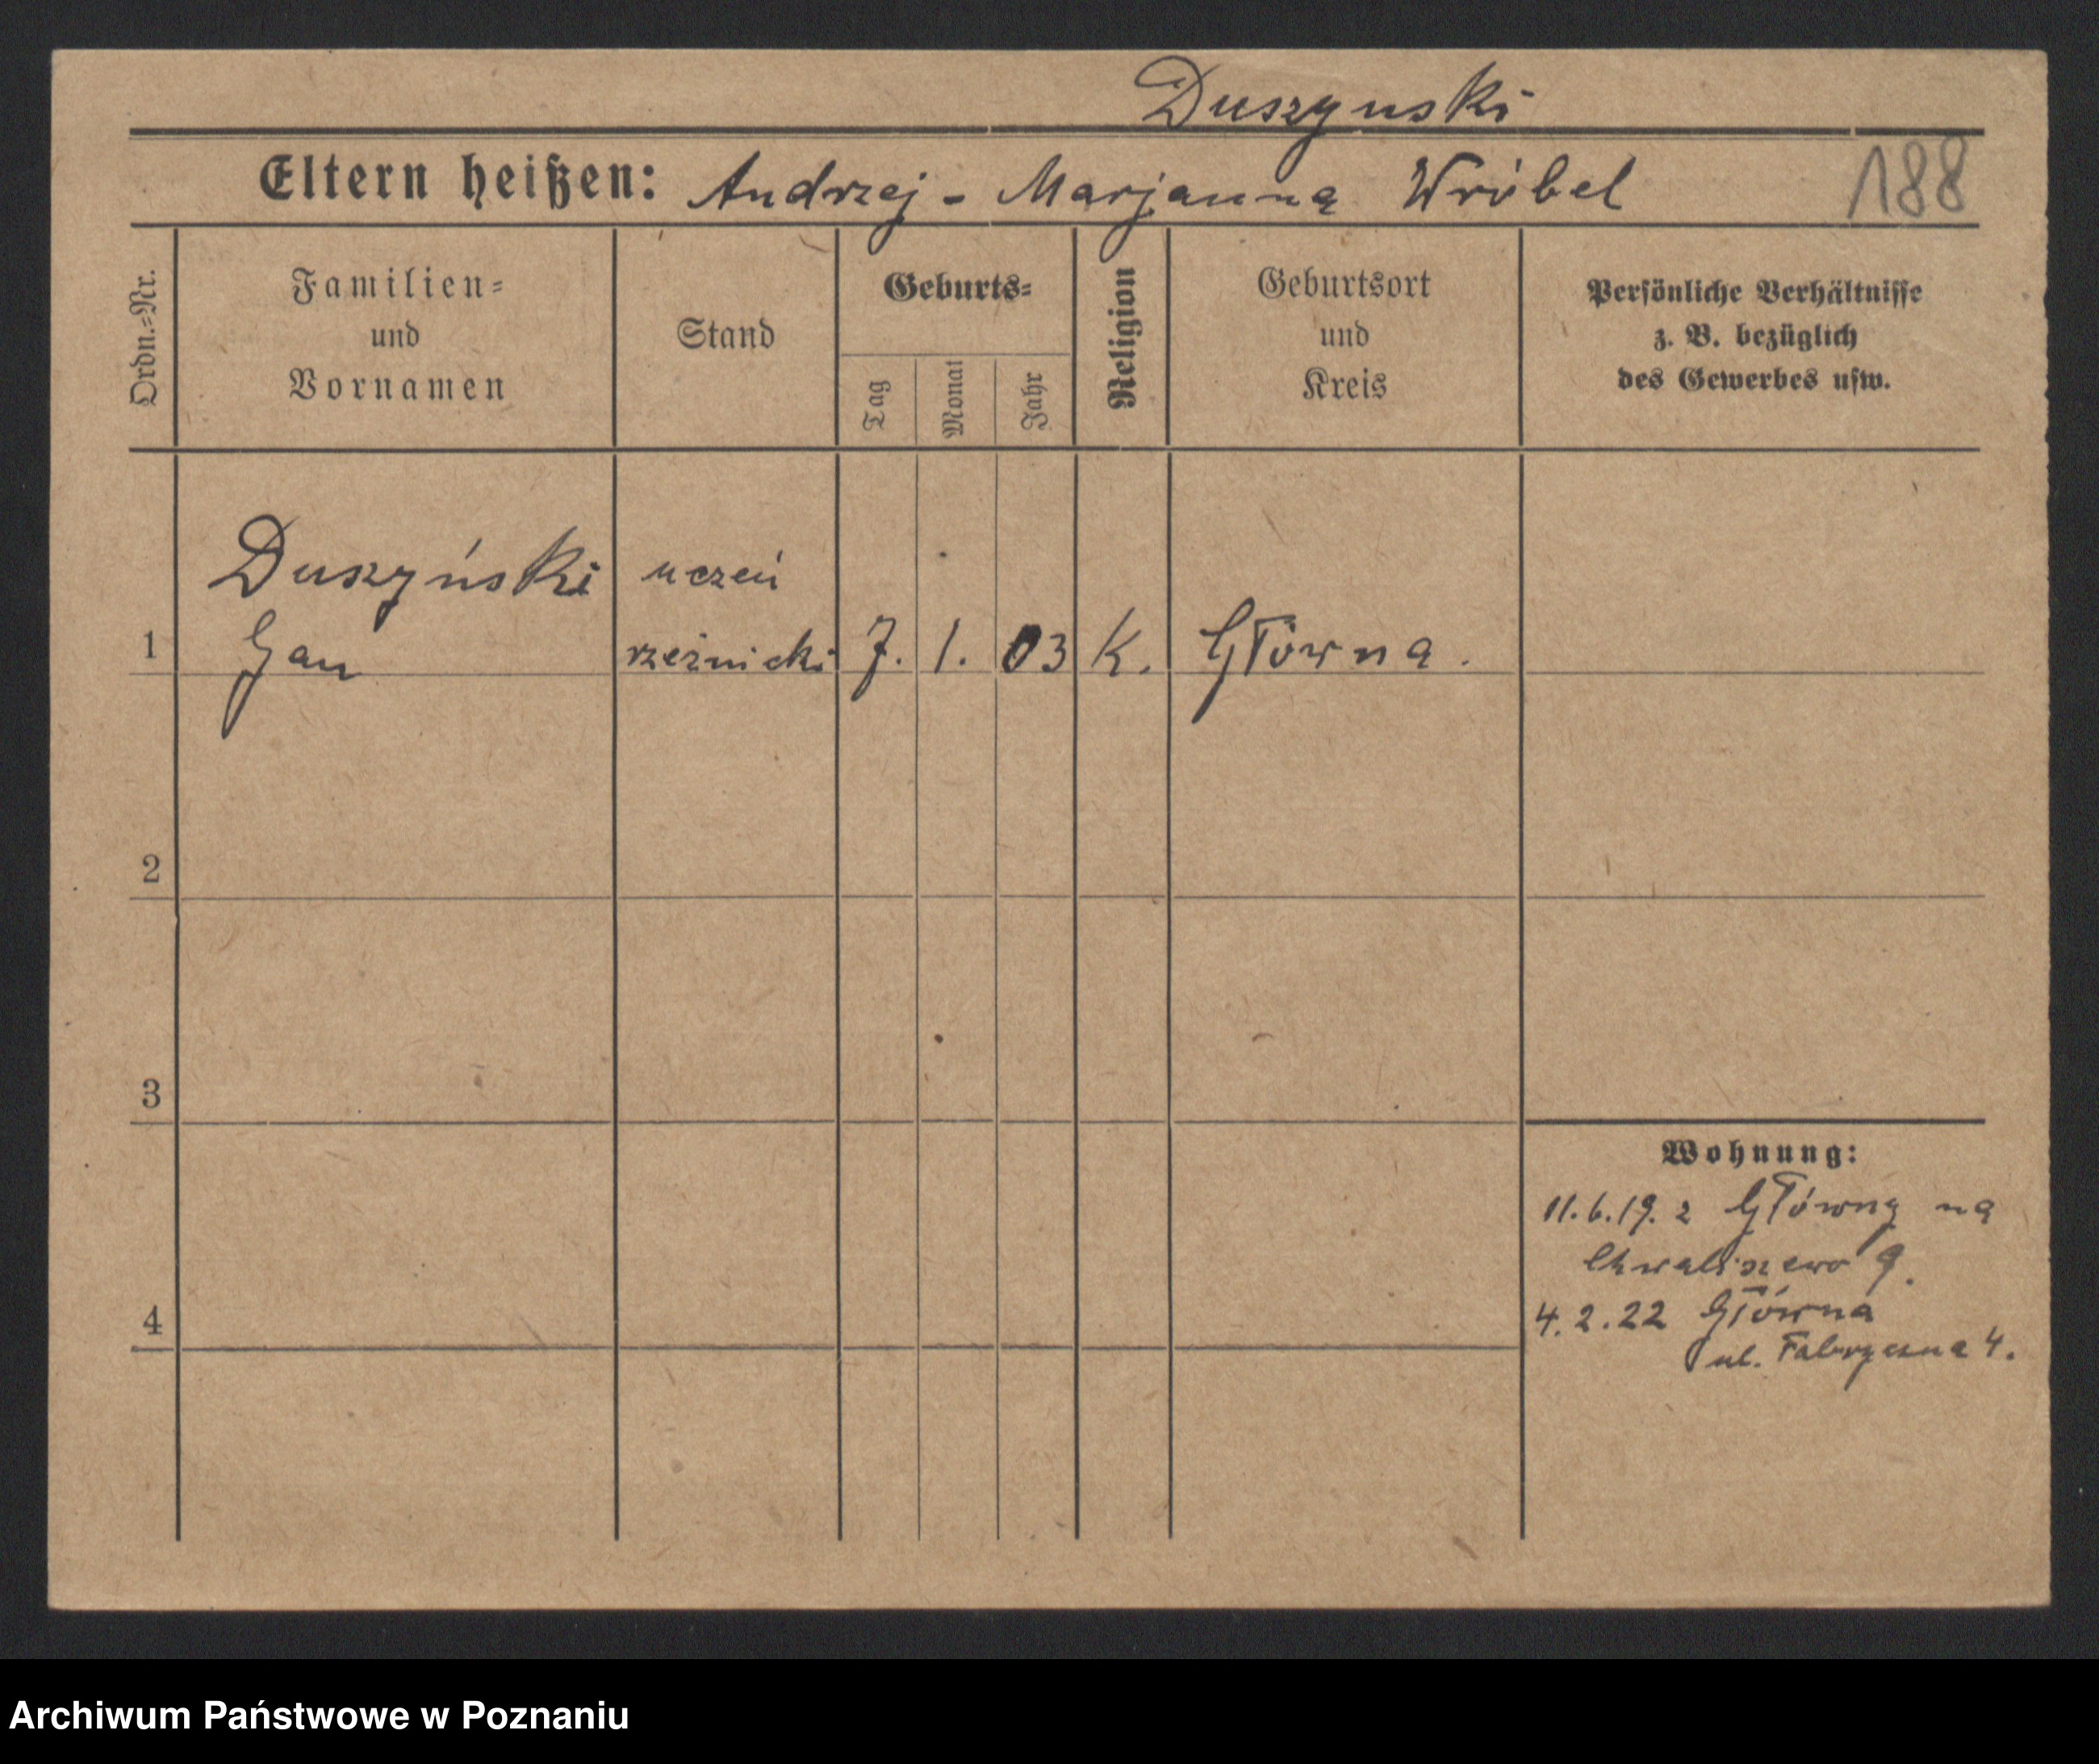 Duszynski
Eltern heißen: Andrzej - Marjanna Wróbel 188
Ordn.=Nr.
Familien=
und
Vornamen
Stand
Geburts=
Tag
Monat
Jahr
Religion
Geburtsort
und
Kreis
Persönliche Verhältnisse
z. B. bezüglich
des Gewerbes usw.
Duszyński uczeń
1 Jan rzeźnicki 7. 1. 03 K. Główna.
2
3
4
Wohnung:
11.6.19. z Główny na
Chwaliszewo 9.
4.2.22 Główna
ul. Fabryczna 4.
Archiwum Państwowe w Poznaniu